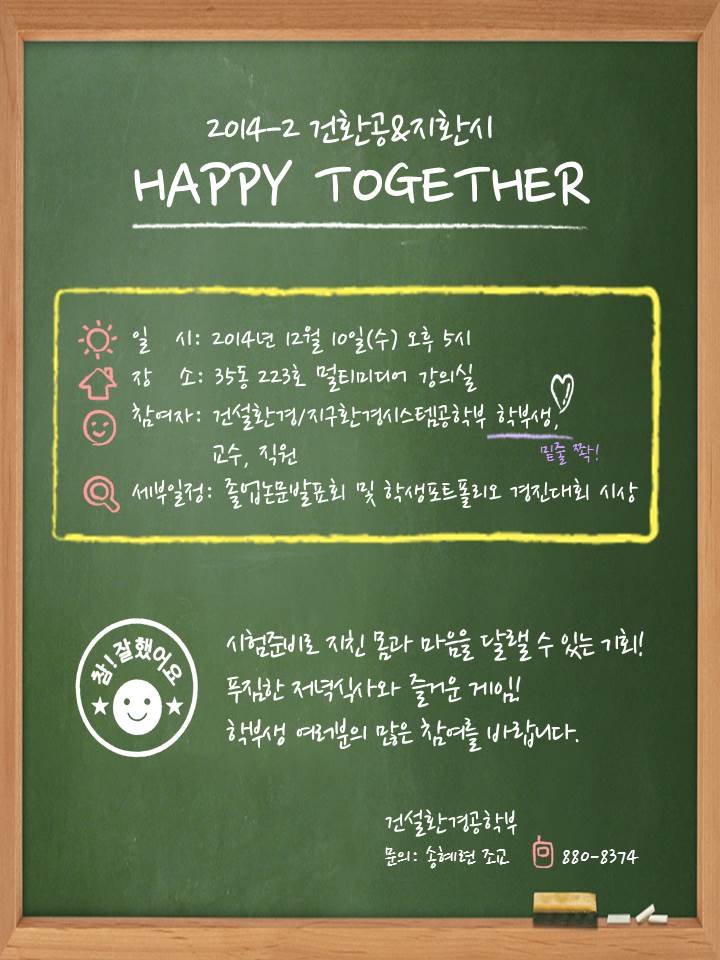 2014-2 건환공&지환시
HAPPY TOGETHER
일 시: 2014년 12월 10일(수) 오후 5시
장 소: 35동 223호 멀티미디어 강의실
참여자: 건설환경/지구환경시스템공학부 학부생,
교수, 직원
밑줄 쫙!
세부일정: 졸업논문발표회 및 학생포트폴리오 경진대회 시상
참! 잘했어요
시험준비로 지친 몸과 마음을 달랠 수 있는 기회!
푸짐한 저녁식사와 즐거운 게임!
학부생 여러분의 많은 참여를 바랍니다.
건설환경공학부
문의: 송혜련 조교 880-8374